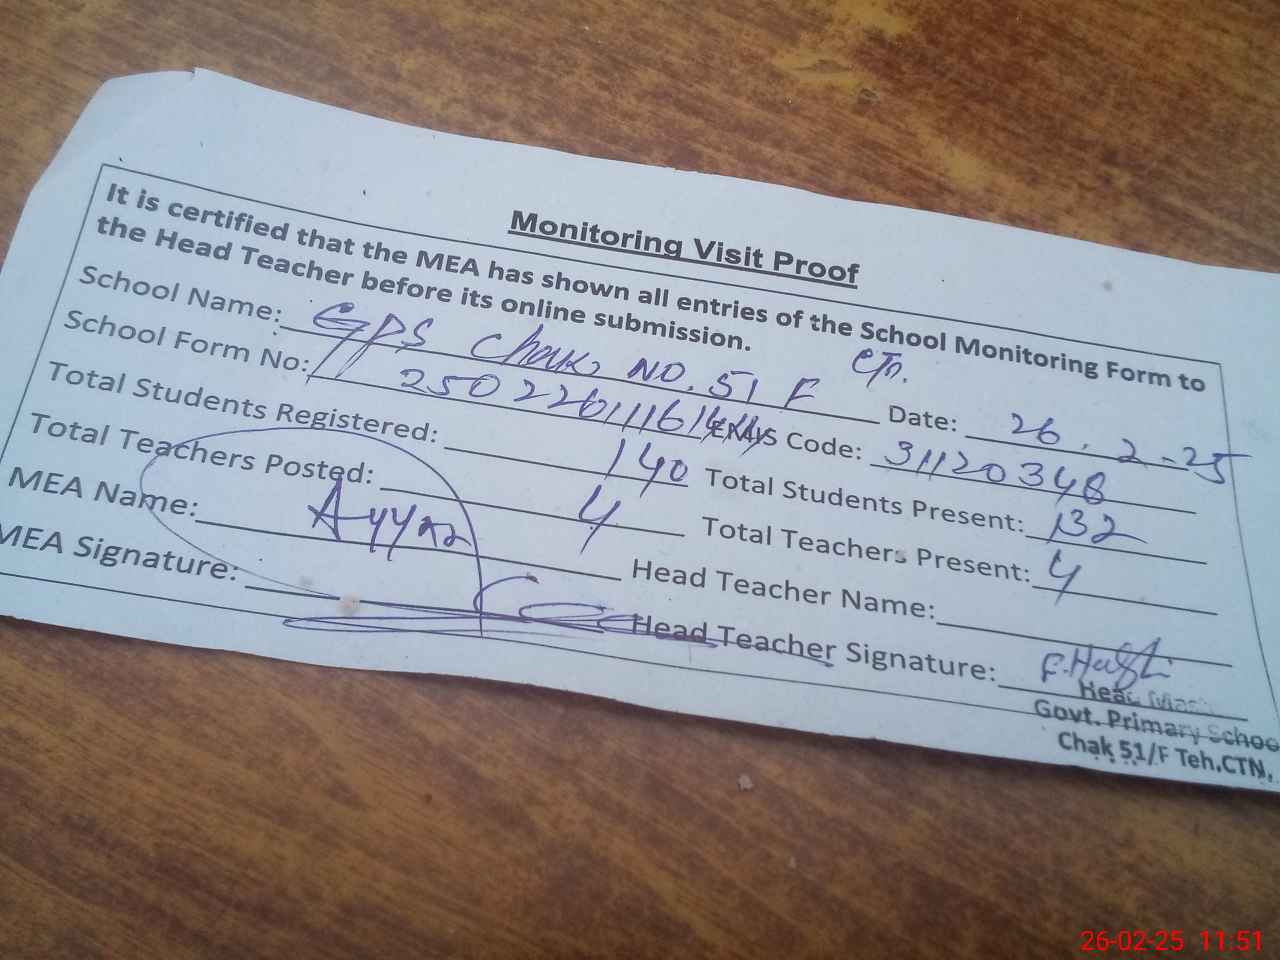 Monitoring Visit Proof
It is certified that the MEA has shown all entries of the School Monitoring Form to
the Head Teacher before its online submission.
School Name: GPS Chak NO. 51 F CTN. Date: 26.2-25
School Form No: EMIS Code: 31120348
Total Students Registered: 140 Total Students Present: 132
Total Teachers Posted: 4 Total Teachers Present: 4
MEA Name: Head Teacher Name:
MEA Signature: Head Teacher Signature:
Govt. Primary School
Chak 51/F Teh.CTN.
26-02-25 11:51